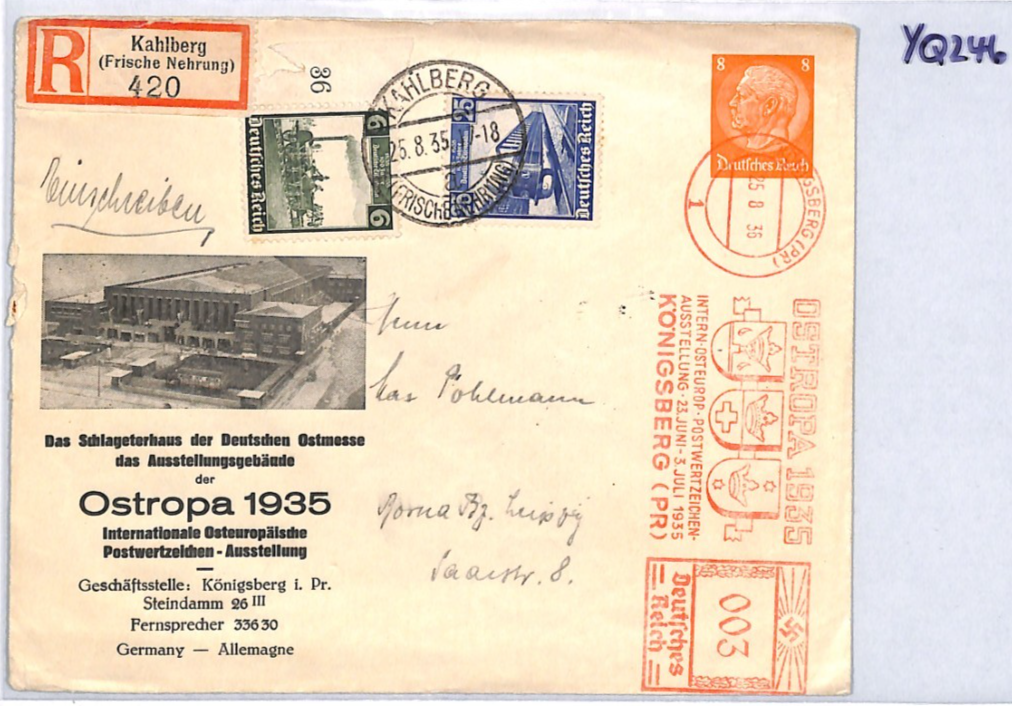 YQ246
R
Kahlberg
(Frische Nehrung)
420
36
8 8
Deutsches Reich
6 6
Deutsches Reich
25 25
Deutsches Reich
KAHLBERG
25.8.35 -18
(FRISCHE NEHRUNG)
Einschreiben
1
25 8 36
GSBERG (PR)
OSTROPA 1935
INTERN·OSTEUROP·POSTWERTZEICHEN-
AUSSTELLUNG·23.JUNI-3.JULI 1935
KÖNIGSBERG (PR)
Deutsches
Reich
003
Herrn
Max Pohlmann
Borna Bz. Leipzig
Saarstr. 8.
Das Schlageterhaus der Deutschen Ostmesse
das Ausstellungsgebäude
der
Ostropa 1935
Internationale Osteuropäische
Postwertzeichen - Ausstellung
Geschäftsstelle: Königsberg i. Pr.
Steindamm 26 III
Fernsprecher 33630
Germany — Allemagne